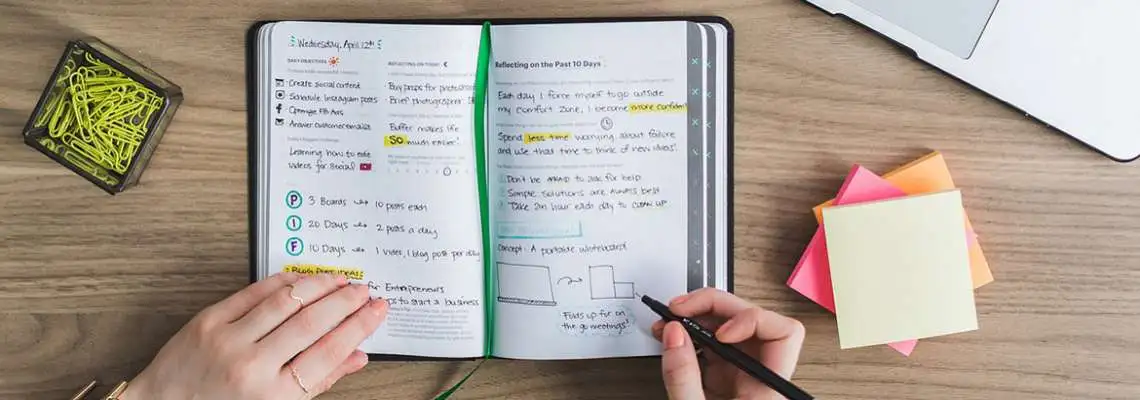 Wednesday, April 12th
DAILY OBJECTIVES
Create social content
Schedule Instagram posts
Optimize FB Ads
Answer customer emails
Learning how to edit
videos for social
P 3 Boards 10 posts each
I 20 Days 2 posts a day
F 10 Days 1 video, 1 blog post per day
BLOG POST IDEAS
for Entrepreneurs
to start a business
REFLECTING ON TODAY
Buy props for photoshoot
Brief photographer
Buffer makes life
SO much easier!
Reflecting on the Past 10 Days
Each day I force myself to go outside
my comfort zone, I become more confident
Spend less time worrying about failure
and use that time to think of new ideas!
Don't be AFRAID to ask for help
Simple solutions are ALWAYS best
Take an hour each day to CLEAN UP
Concept: A portable whiteboard
Folds up for on
the go meetings!